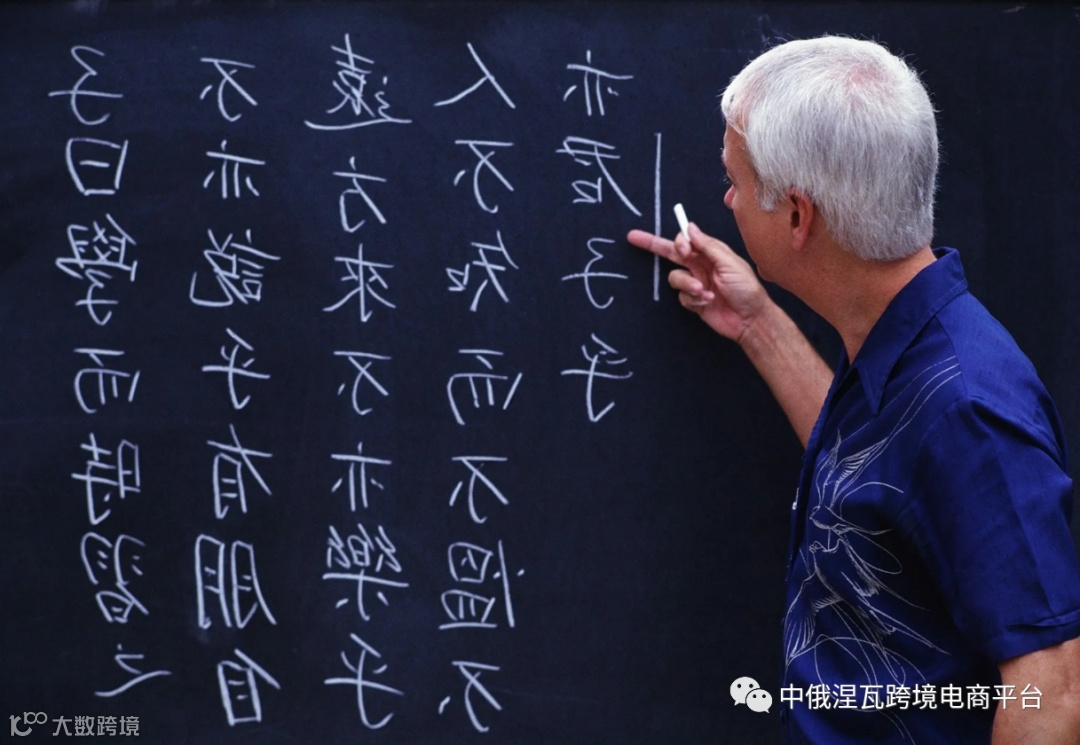 子曰學而時習之
不亦說乎有朋自
遠方來不亦樂乎
人不知而不慍不
亦君子乎
中俄涅瓦跨境电商平台
大数跨境